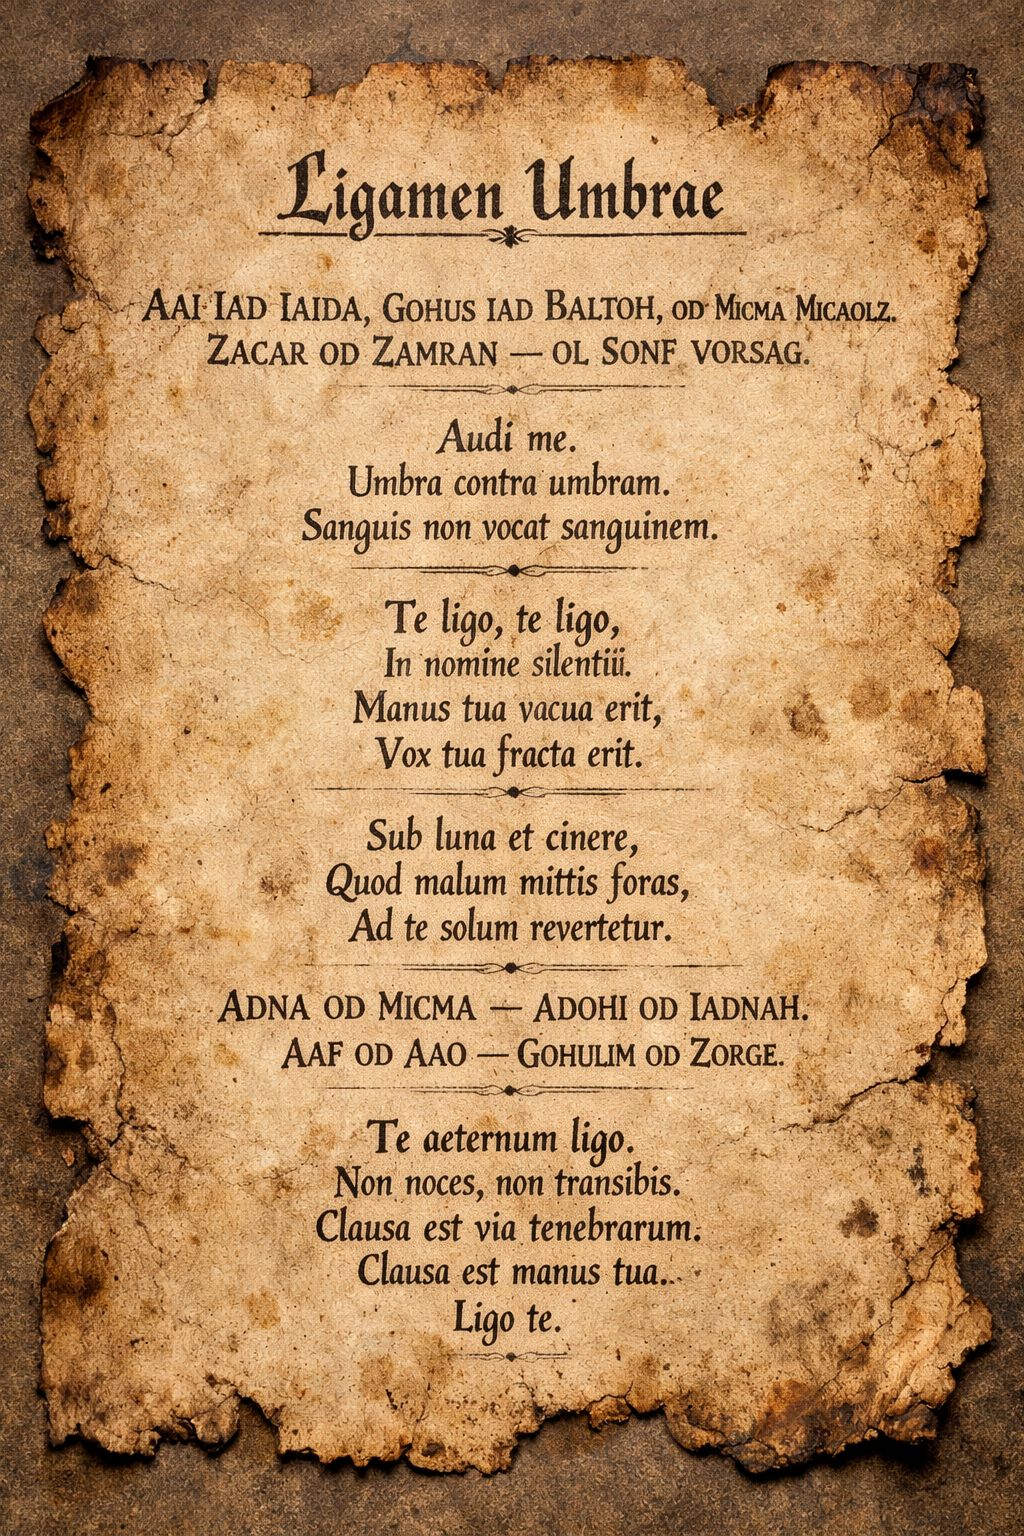 Ligamen Umbrae
AAI IAD IAIDA, GOHUS IAD BALTOH, OD MICMA MICAOLZ.
ZACAR OD ZAMRAN — OL SONF VORSAG.
Audi me.
Umbra contra umbram.
Sanguis non vocat sanguinem.
Te ligo, te ligo,
In nomine silentiii.
Manus tua vacua erit,
Vox tua fracta erit.
Sub luna et cinere,
Quod malum mittis foras,
Ad te solum revertetur.
ADNA OD MICMA — ADOHI OD IADNAH.
AAF OD AAO — GOHULIM OD ZORGE.
Te aeternum ligo.
Non noces, non transibis.
Clausa est via tenebrarum.
Clausa est manus tua..
Ligo te.